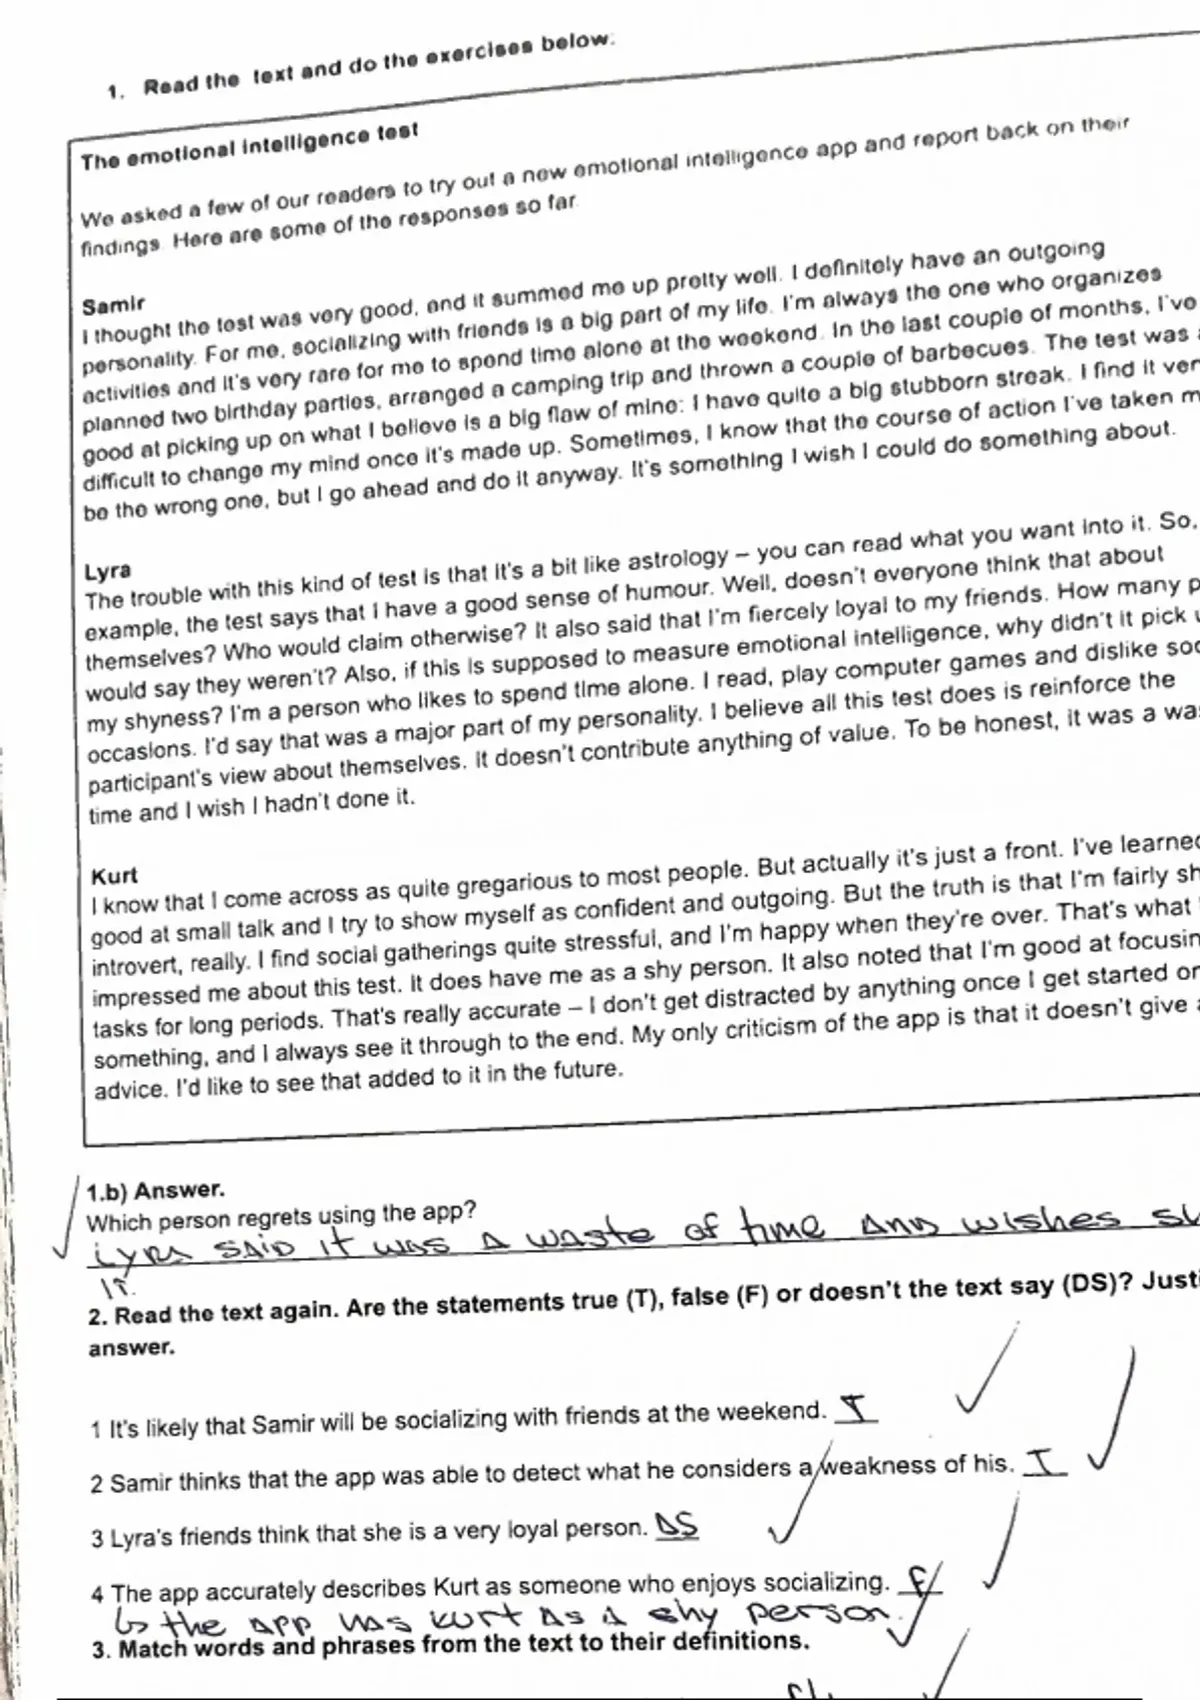 1. Read the text and do the exercises below.
The emotional intelligence test
We asked a few of our readers to try out a new emotional intelligence app and report back on their
findings. Here are some of the responses so far.
Samir
I thought the test was very good, and it summed me up pretty well. I definitely have an outgoing
personality. For me, socializing with friends is a big part of my life. I'm always the one who organizes
activities and it's very rare for me to spend time alone at the weekend. In the last couple of months, I've
planned two birthday parties, arranged a camping trip and thrown a couple of barbecues. The test was
good at picking up on what I believe is a big flaw of mine: I have quite a big stubborn streak. I find it
difficult to change my mind once it's made up. Sometimes, I know that the course of action I've taken
be the wrong one, but I go ahead and do it anyway. It's something I wish I could do something about.
Lyra
The trouble with this kind of test is that it's a bit like astrology – you can read what you want into it. So,
example, the test says that I have a good sense of humour. Well, doesn't everyone think that about
themselves? Who would claim otherwise? It also said that I'm fiercely loyal to my friends. How many
would say they weren't? Also, if this is supposed to measure emotional intelligence, why didn't it pick
my shyness? I'm a person who likes to spend time alone. I read, play computer games and dislike
occasions. I'd say that was a major part of my personality. I believe all this test does is reinforce the
participant's view about themselves. It doesn't contribute anything of value. To be honest, it was a
time and I wish I hadn't done it.
Kurt
I know that I come across as quite gregarious to most people. But actually it's just a front. I've learned
good at small talk and I try to show myself as confident and outgoing. But the truth is that I'm fairly
introvert, really. I find social gatherings quite stressful, and I'm happy when they're over. That's what
impressed me about this test. It does have me as a shy person. It also noted that I'm good at
tasks for long periods. That's really accurate – I don't get distracted by anything once I get started
something, and I always see it through to the end. My only criticism of the app is that it doesn't give
advice. I'd like to see that added to it in the future.
1.b) Answer.
Which person regrets using the app?
Lyra said it was a waste of time and wishes
it.
2. Read the text again. Are the statements true (T), false (F) or doesn't the text say (DS)?
answer.
1 It's likely that Samir will be socializing with friends at the weekend. T
2 Samir thinks that the app was able to detect what he considers a weakness of his. T
3 Lyra's friends think that she is a very loyal person. DS
4 The app accurately describes Kurt as someone who enjoys socializing. F
↳ the app has kurt as a shy person.
3. Match words and phrases from the text to their definitions.